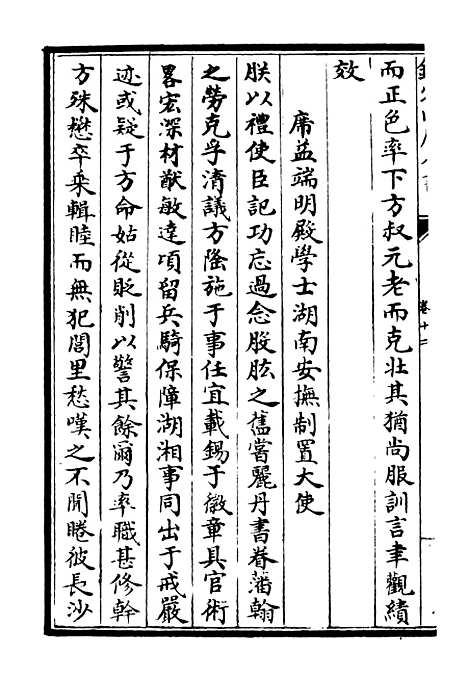 而正色率下方叔元老而克壯其猶尚服訓言聿觀績
效
席益端明殿學士湖南安撫制置大使
朕以禮使臣記功忘過念股肱之舊嘗麗丹書眷藩翰
之勞克孚清議方隆施于事任宜載錫于徽章具官術
畧宏深材猷敏達頃留兵騎保障湖湘事同出于戒嚴
迹或疑于方命姑從貶削以警其餘爾乃率職甚修幹
方殊懋卒乘輯睦而無犯閭里愁嘆之不聞睠彼長沙
卷十二